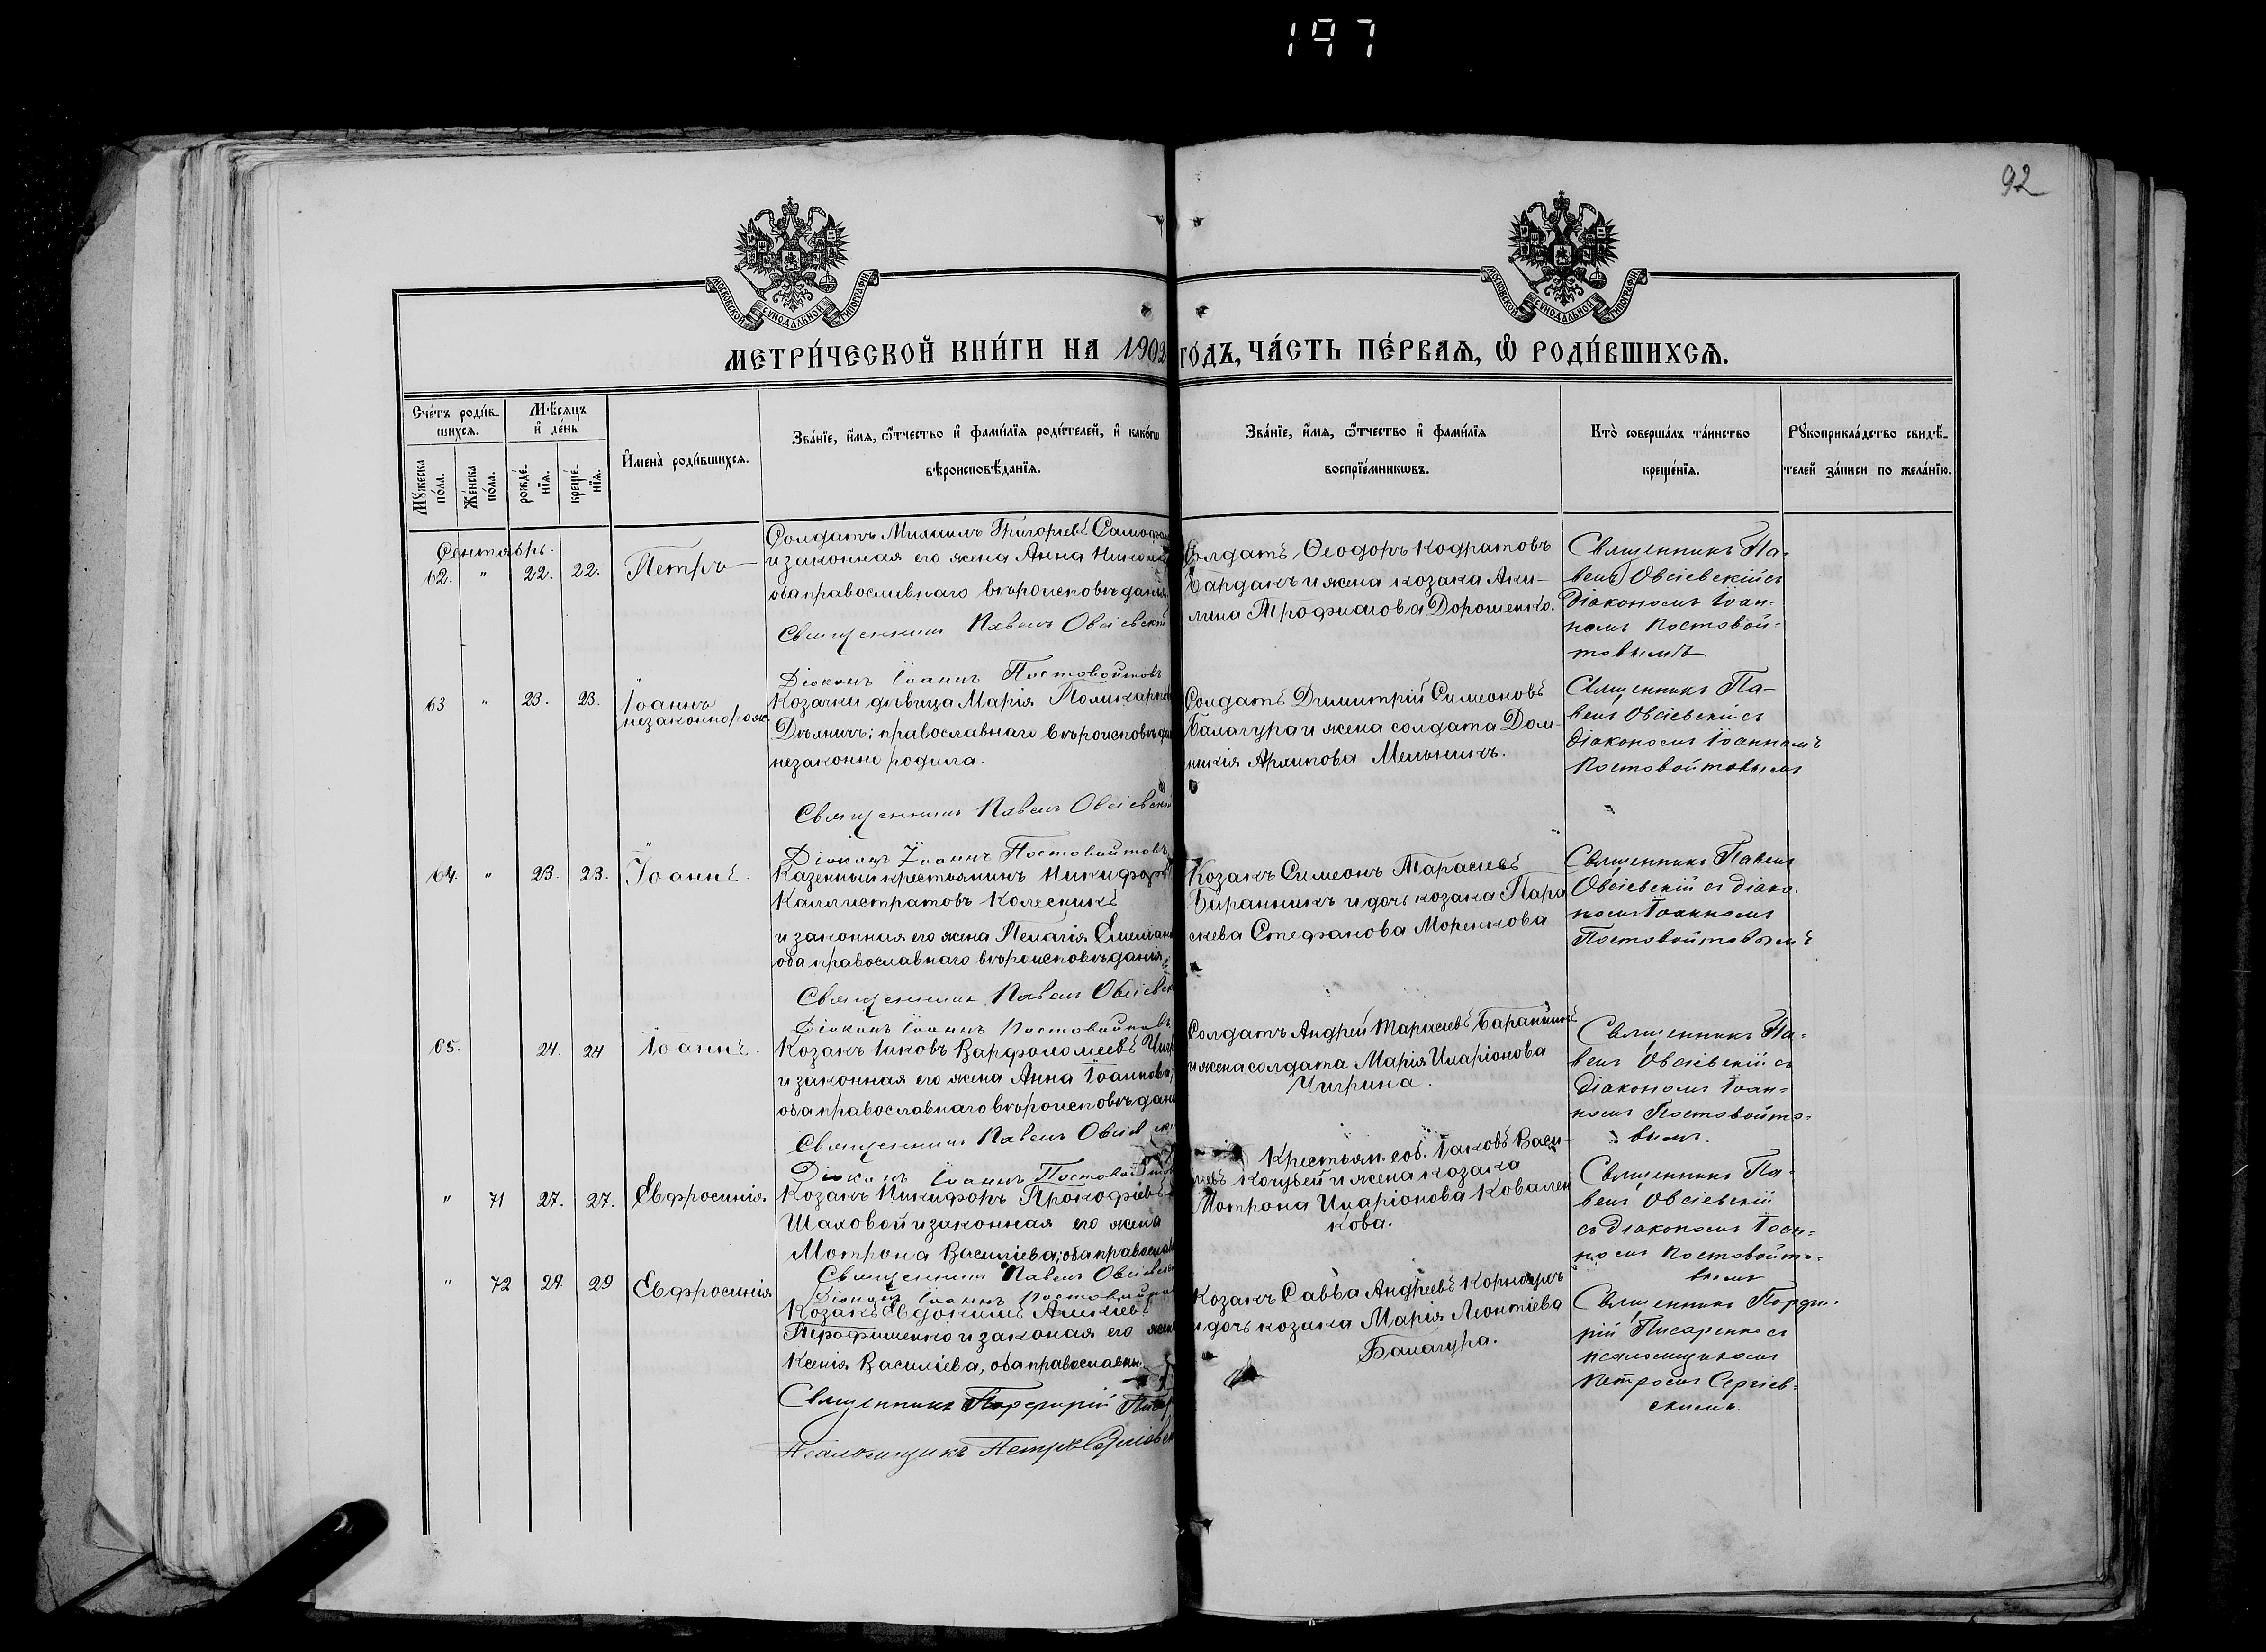 197
92
МОСКОВСКОЙ СУНОДАЛЬНОЙ ТИПОГРАФИИ
МОСКОВСКОЙ СУНОДАЛЬНОЙ ТИПОГРАФИИ
МЕТРИ́ЧЕСКОЙ КНИ́ГИ НА 1902 ГО́ДЪ, ЧА́СТЬ ПЕ́РВАЯ, Ѽ РОДИ́ВШИХСЯ.
Сче́тъ роди́в-
шихся.
Мꙋжеска по́ла.
Же́нска по́ла.
Мѣ́сяцъ
и̂ де́нь
рожде́-
нїя.
креще́-
нїя.
И̂мена̀ роди́вшихся.
Зва́нїе, и̂́мя, ѻ҆́тчество и̂ фами́лїя роди́телей, и̂ како́гѡ
вѣроисповѣ́данїя.
Зва́нїе, и̂́мя, ѻ҆́тчество и̂ фами́лїя
воспрїе́мникѡвъ.
Кто̀ соверша́лъ та́инство
креще́нїя.
Рꙋкоприкла́дство свидѣ́-
телей за́писи по жела́нїю.
Сентябрь.
62. " 22. 22. Петръ
Солдатъ Михаилъ Григорьевъ
и законная его жена Анна
оба православнаго вѣроисповѣданія
Священникъ Павелъ Овсіевскій
Діаконъ Іоаннъ Постовойтовъ
Солдатъ Ѳеодоръ Кодратовъ
Бардакъ и жена козака Аки-
лина Трофимова Дорошенко.
Священникъ Па-
велъ Овсіевскій съ
Діакономъ Іоан-
номъ Постовой-
товымъ
63 " 23. 23. Іоаннъ
незаконнорож.
Козачки дѣвица Марія
Дѣяничъ; православнаго
незаконно родила.
Священникъ Павелъ Овсіевскій
Діаконъ Іоаннъ Постовойтовъ
Солдатъ Димитрій Симеоновъ
Балагура и жена солдата Дом-
никія Архипова Мельникъ.
Священникъ Па-
велъ Овсіевскій съ
діакономъ Іоанномъ
Постовойтовымъ
64. " 23. 23. Іоаннъ.
Казенный крестьянинъ Никифоръ
Каллистратовъ Колесникъ
и законная его жена Пелагія
оба православнаго вѣроисповѣданія
Священникъ Павелъ
Діаконъ Іоаннъ Постовойтовъ
Козакъ Симеонъ Тарасіевъ
Баранникъ и дочь козака Пара
скева Стефанова Моренкова
Священникъ Павелъ
Овсіевскій съ діако-
номъ Іоанномъ
Постовойтовымъ
65. 24. 24 Іоаннъ.
Козакъ Іаковъ Варфоломеевъ
и законная его жена Анна Іоаннова,
оба православнаго
Священникъ Павелъ
Діаконъ Іоаннъ
Солдатъ Андрей Тарасіевъ Баранникъ
и жена солдата Марія Иларіонова
Чигрина.
Священникъ Па-
велъ Овсіевскій съ
діакономъ Іоан-
номъ Постовойто-
вымъ.
" 71 27. 27. Евфросинія.
Козакъ Никифоръ Прокофіевъ
Шаховой и законная его жена
Мотрона Василіева; оба
Священникъ Павелъ
Діаконъ Іоаннъ
Крестьян. соб. Іаковъ Васи-
ліевъ Кочубей и жена козака
Мотрона Иларіонова Ковален
кова.
Священникъ Па-
велъ Овсіевскій
съ діакономъ Іоан-
номъ Постовойто-
вымъ
" 72 29. 29 Евфросинія
Козакъ Евдокимъ
Трофименко и законая его жена
Ксенія Василіева, оба
Священникъ Порфирій
Псаломщикъ Петръ
Козакъ Савва Андреевъ
и дочь козака Марія Леонтіева
Балагура.
Священникъ Порфи-
рій Писаренко съ
псаломщикомъ
Петромъ Сергіев-
скимъ.